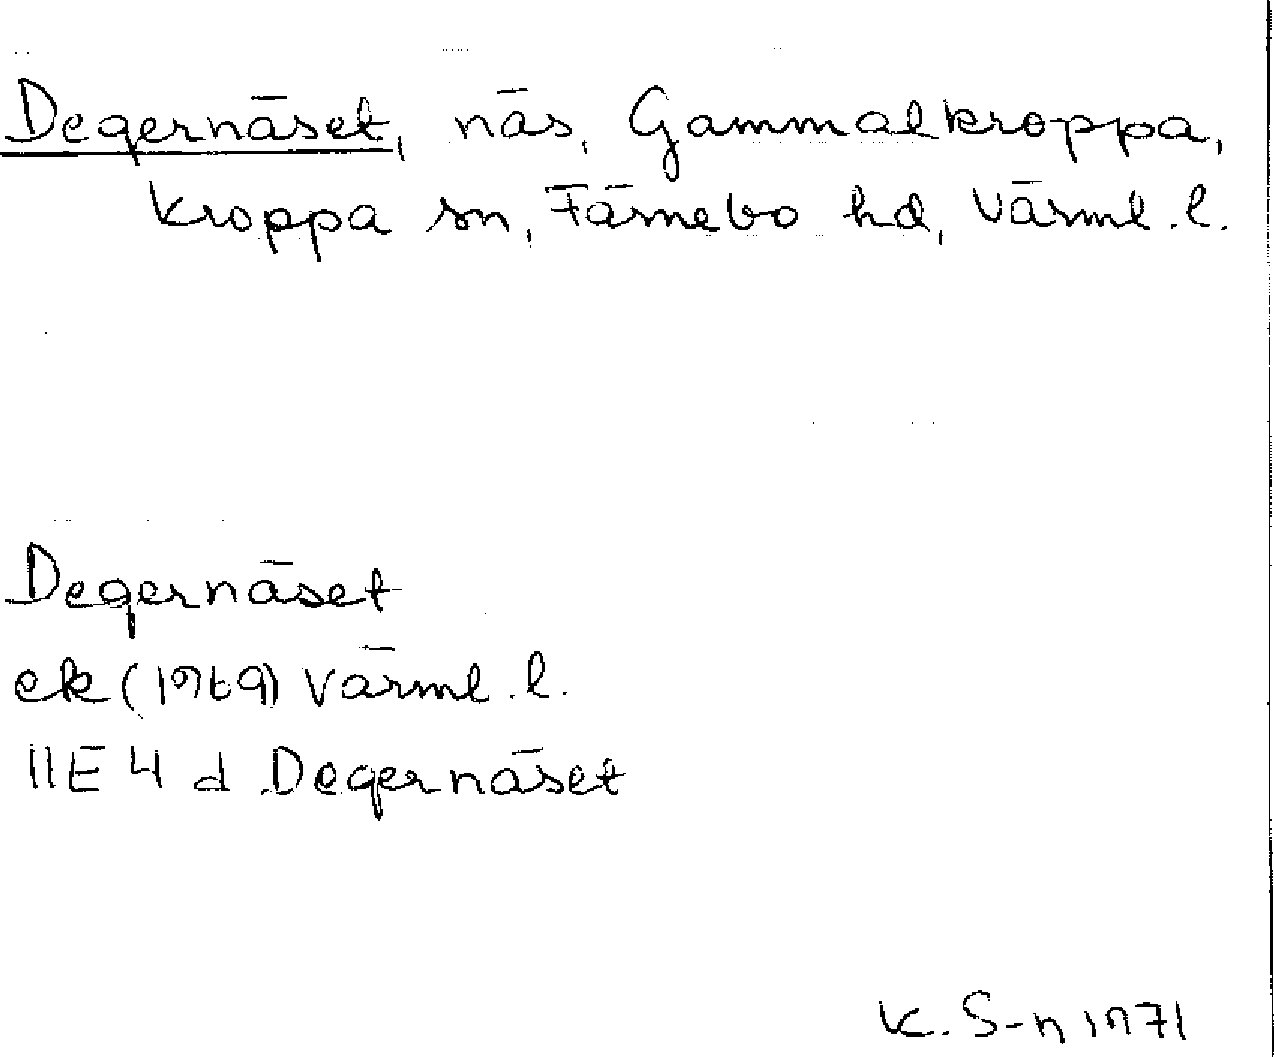 Degernäset, näs, Gammalkroppa,
Kroppa sn, Färnebo hd, Värml. l.
Degernäset
ek (1969) Värml. l.
11E 4 d Degernäset
K. S-n 1971